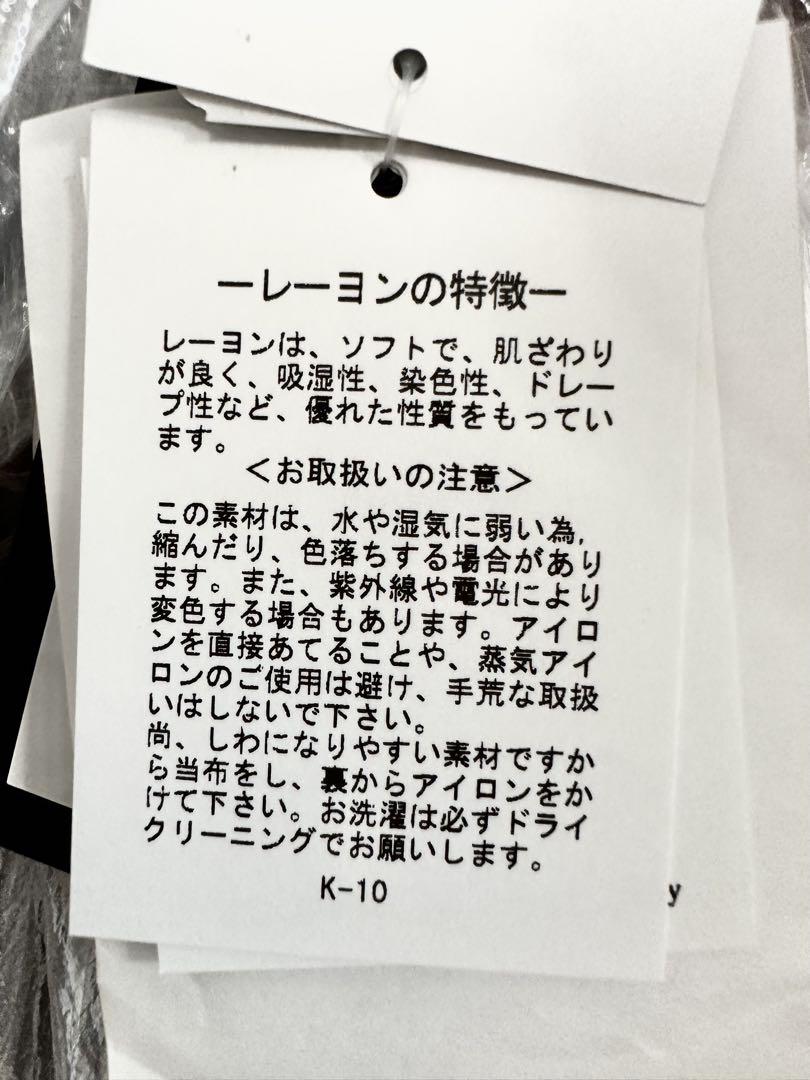 ーレーヨンの特徴ー
レーヨンは、ソフトで、肌ざわり
が良く、吸湿性、染色性、ドレー
プ性など、優れた性質をもってい
ます。
＜お取扱いの注意＞
この素材は、水や湿気に弱い為，
縮んだり、色落ちする場合があり
ます。また、紫外線や電光により
変色する場合もあります。アイロ
ンを直接あてることや、蒸気アイ
ロンのご使用は避け、手荒な取扱
いはしないで下さい。
尚、しわになりやすい素材ですか
ら当布をし、裏からアイロンをか
けて下さい。お洗濯は必ずドライ
クリーニングでお願いします。
K-10
y